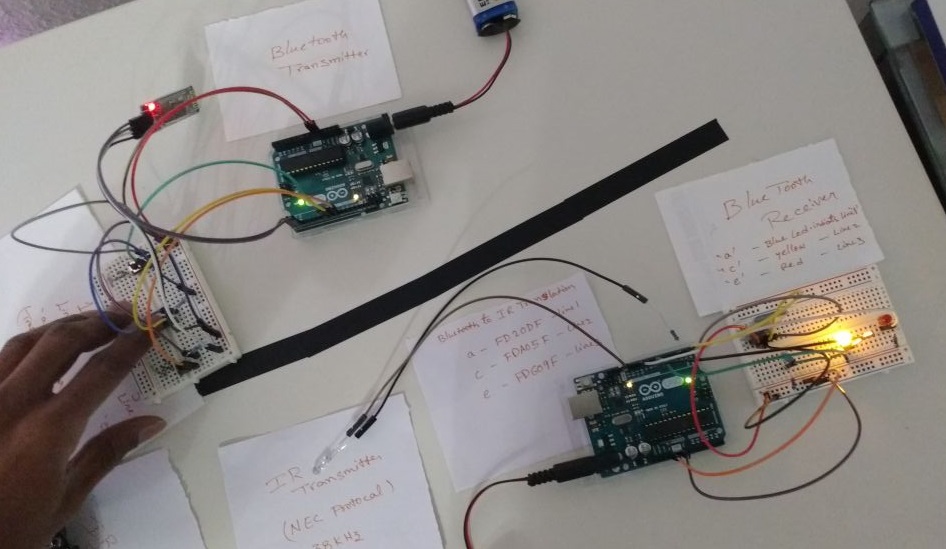 Bluetooth
Transmitter
BlueTooth
Receiver
"a" - Blue Led-indicates Line1
"c" - yellow - Line2
"e" - Red - Line3
Bluetooth to IR Translation
a - FD20DF - Line1
c - FDA05F - Line2
e - FD609F - Line3
IR
Transmitter
(NEC Protocal)
38KHz
ARDUINO
ARDUINO